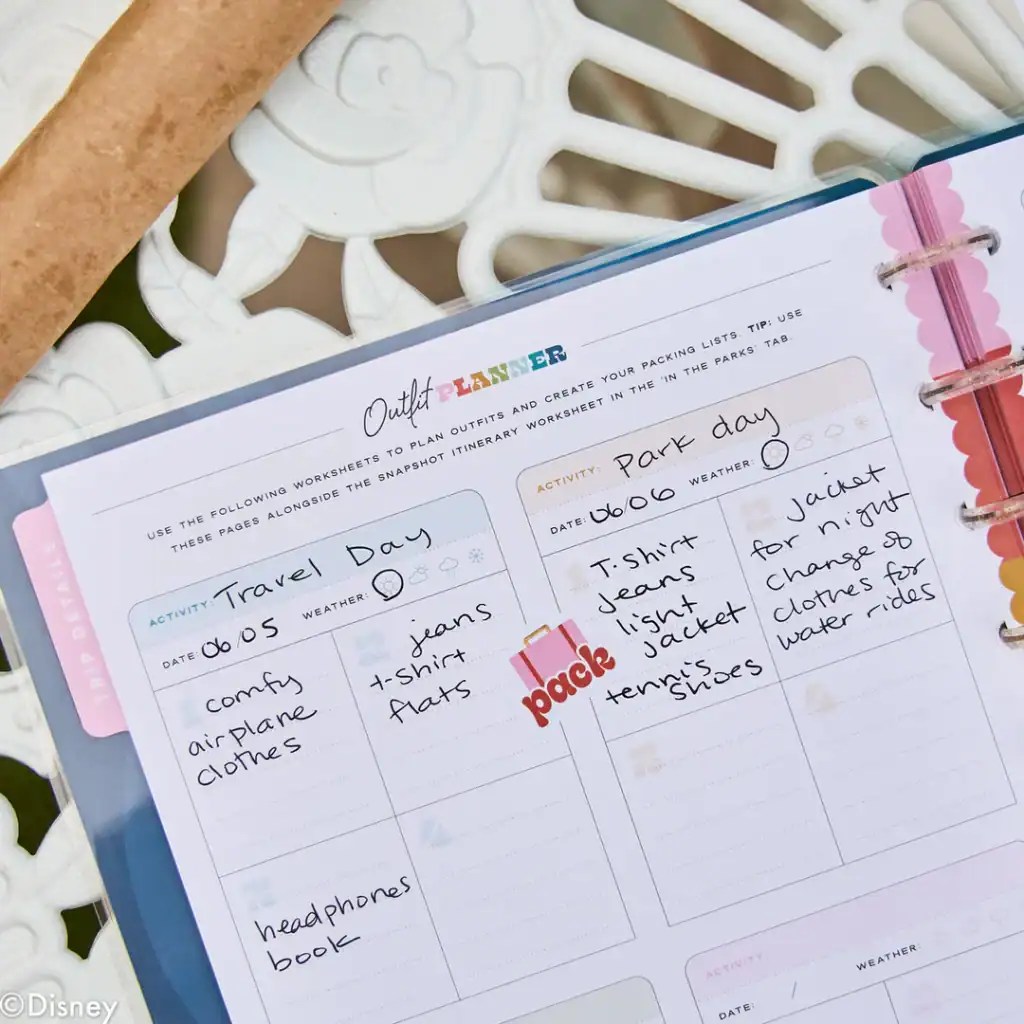 Outfit PLANNER
USE THE FOLLOWING WORKSHEETS TO PLAN OUTFITS AND CREATE YOUR PACKING LISTS. TIP: USE
THESE PAGES ALONGSIDE THE SNAPSHOT ITINERARY WORKSHEET IN THE 'IN THE PARKS' TAB.
ACTIVITY: Travel Day
DATE: 06/05 WEATHER:
comfy
airplane
clothes
jeans
t-shirt
flats
headphones
book
ACTIVITY: Park day
DATE: 06/06 WEATHER:
T-shirt
jeans
light
jacket
tennis
shoes
jacket
for night
change of
clothes for
water rides
pack
ACTIVITY
DATE: / WEATHER:
©Disney